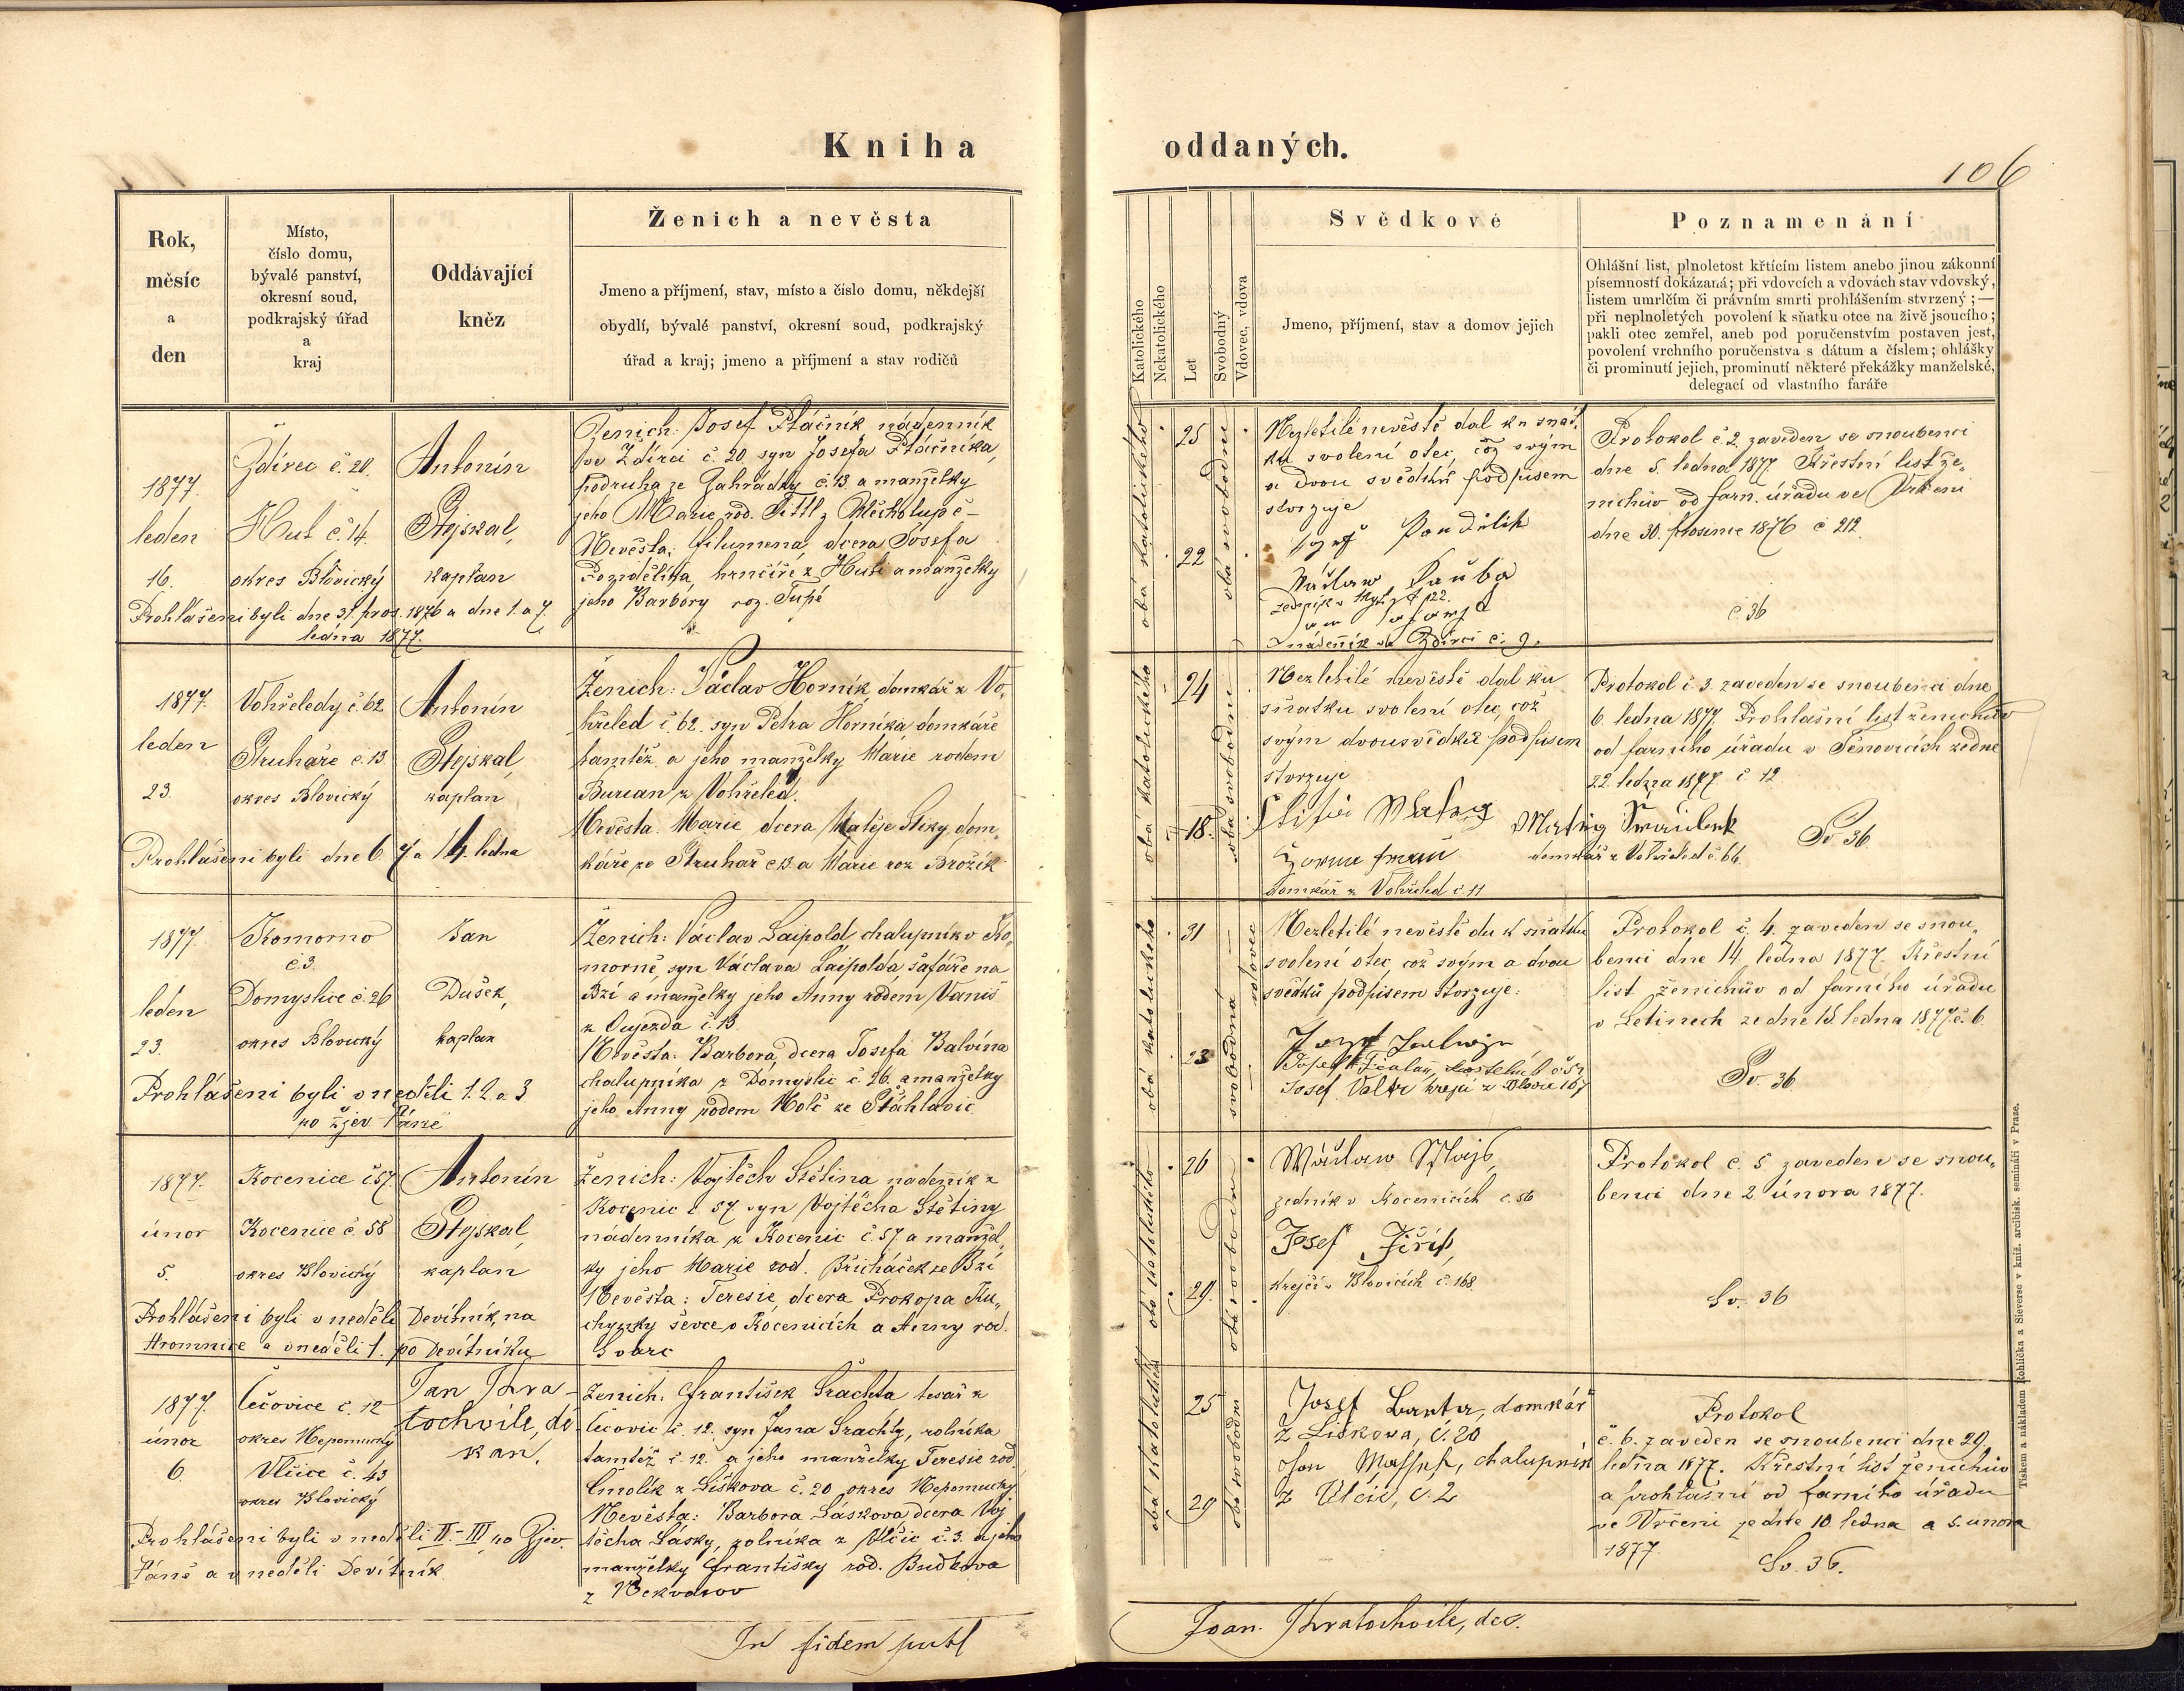 Kniha oddaných.
106
Rok, měsíc a den
Místo, číslo domu, bývalé panství, okresní soud, podkrajský úřad a kraj
Oddávající kněz
Ženich a nevěsta
Jmeno a příjmení, stav, místo a čislo domu, někdejší
obydlí, bývalé panství, okresní soud, podkrajský
úřad a kraj; jmeno a příjmení a stav rodičů
Katolického
Nekatolického
Let
Svobodný
Vdovec, vdova
Svědkové
Jmeno, příjmení, stav a domov jejich
Poznamenání
Ohlášní list, plnoletost křtícím listem anebo jinou zákonní
písemností dokázaná; při vdovcích a vdovách stav vdovský,
listem umrlčím či právním smrti prohlášením stvrzený; —
při neplnoletých povolení k sňatku otce na živě jsoucího;
pakli otec zemřel, aneb pod poručenstvím postaven jest,
povolení vrchního poručenstva s dátum a číslem; ohlášky
či prominutí jejich, prominutí některé překážky manželské,
delegací od vlastního faráře
1877.
leden
16.
Ždírec č. 20.
Huť č. 14.
okres Blovický
Antonín
Stejskal,
kaplan
Prohlášeni byli dne 31. pros. 1876 a dne 1. a 7.
ledna 1877.
Ženich: Josef Ptáčník nádenník
ve Ždírci č. 20 syn Josefa Ptáčníka,
podruha ze Zahrádky č. 13 a manželky
jeho Marie rod. Tittl z
Nevěsta: Filumena, dcera Josefa
hrnčíře z Huti a manželky
jeho Barbory roz. Tupé
obá katolického
25
22
oba svobodni
Nezletilé nevěstě dal ku sňat-
ku svolení otec, což svým
a dvou svědků podpisem
stvrzuje
Václaw Bauba
nádenník ve Ždírci č. 9.
Protokol č. 2 zaveden se snoubenci
dne 5. ledna 1877. Křestní list že-
nichův od farn. úřadu ve Vrčeni
dne 30. prosince 1876 č 212.
č. 36
1877.
leden
23.
Vohřeledy č. 62
Struhaře č. 13.
okres Blovický
Antonín
Stejskal,
kaplan
Prohlášeni byli dne 6. 7 a 14. ledna
Ženich: Václav Horník domkář z Vo-
hřeled č. 62. syn Petra Horníka, domkáře
tamtéž a jeho manželky Marie rodem
Burian z Vohřeled.
Nevěsta: Marie dcera Matěje dom-
káře ze Struhař č. 13 a Marie roz Brožík
obá katolického
24
18.
oba svobodni
Nezletilé nevěstě dal ku
sňatku svolení otec, což
svým dvou svědků podpisem
stvrzuje
domkář z Vohřeled č. 66.
domkář z Vohřeled č. 11
Protokol č. 3. zaveden se snoubenci dne
6. ledna 1877. Prohlašní list ženichův
od farního úřadu v Těnovicích ze dne
22. ledna 1877 č 12
Sv. 36.
1877.
leden
23.
Komorno
č. 3.
Domyslice č. 26
okres Blovický
Jan
Dušek,
kaplan
Prohlášeni byli v neděli 1. 2. a 3
po zjev Páně
Ženich: Václav Laipold, chalupník v Ko-
morně, syn Václava Laipolda šafáře na
Bzí a manželky jeho Anny rodem Vaniš
z Oujezda č. 13.
Nevěsta: Barbora, dcera Josefa Balvína
chalupníka z Domyslic č. 26. a manželky
jeho Anny rodem Holč ze Štáhlavic
obá katolického
31
23
svobodná
vdovec
Nezletilé nevěstě du k sňatku
svolení otec, což svým a dvou
svědků podpisem stvrzuje:
Josef Valtr krejčí z Blovic 167
Protokol č. 4. zaveden se snou-
benci dne 14. ledna 1877. Křestní
list ženichův od farního úřadu
v Letinech ze dne 15. ledna 1877 č. 6.
Sv. 36
1877.
únor
5.
Kocenice č 57.
Kocenice č. 58
okres Blovický
Antonín
Stejskal,
kaplan
Prohlášeni byli v neděli Devítník, na
Hromnice a v neděli 1. po Devítníku
Ženich: Vojtěch Štětina nádeník z
Kocenic č. 57 syn Vojtěcha Štětiny
nádenníka z Kocenic č. 57. a manžel-
ky jeho Marie rod. Břicháček ze Bzí
Nevěsta: Teresie, dcera Prokopa Ku-
chynky ševce v Kocenicích a Anny rod.
Švarc
obá katolického
26
29.
oba svobodni
Wáclaw Majš,
zedník v Kocenicích č. 56
Josef Jiřík,
krejčí v Blovicích č. 168.
Protokol č. 5 zaveden se snou-
benci dne 2. února 1877.
Sv. 36
1877.
únor
6.
Čečovice č. 12
okres Nepomucký
Vlčice č. 43
okres Blovický
Jan Khra-
tochvile, dě-
kan.
Prohlášeni byli v neděli II. - III. po Zjev.
Páně a v neděli Devítník
Ženich: František Šrachta tesař z
Čečovic č. 12. syn Jana Šrachty, rolníka
tamtéž č. 12. a jeho manželky Teresie rod.
Čmolík z Liškova č. 20 okres Nepomucký
Nevěsta: Barbora Lásková, dcera Voj-
těcha Lásky, rolníka z Vlčic č. 3. a jeho
manželky Františky rod. Budkova
z Nekvasov
obá katolického
25
29
oba svobodni
Josef domkář
z Liškova, č. 20
Jan chalupník
z Vlčic, č. 2
Protokol
č. 6. zaveden se snoubenci dne 29.
ledna 1877. Křestní list ženichův
a prohlašní od farního úřadu
ve Vrčeni ze dne 10. ledna a 5. února
1877.
Sv. 36.
Tiskem a nákladem Rohlíčka a Sieverse v kníž. arcibisk. semináři v Praze.
In fidem publ
Joan. Khratochvile, dec.